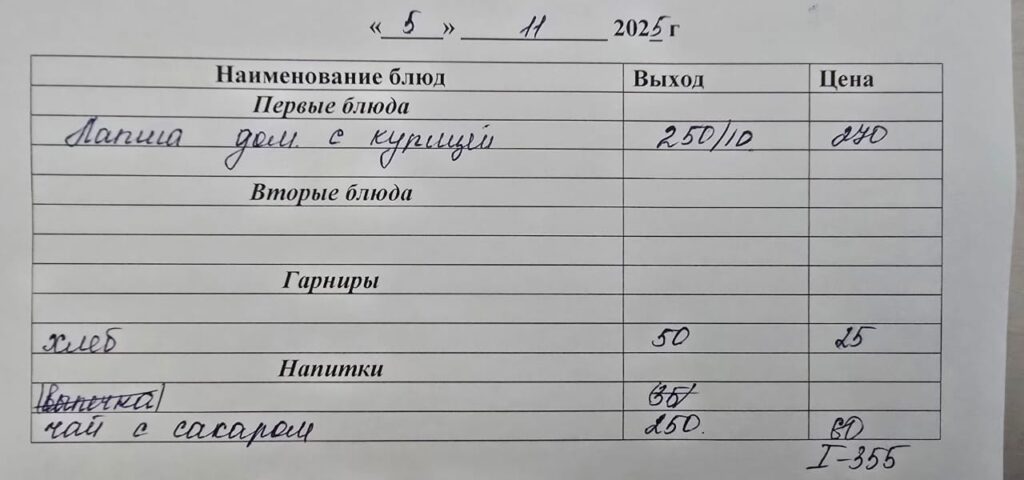 « 5 » 11 2025 г
Наименование блюд Выход Цена
Первые блюда
Лапша дом. с курицей 250/10 270
Вторые блюда
Гарниры
хлеб 50 25
Напитки
выпечка 35
чай с сахаром 250. 60
I-355